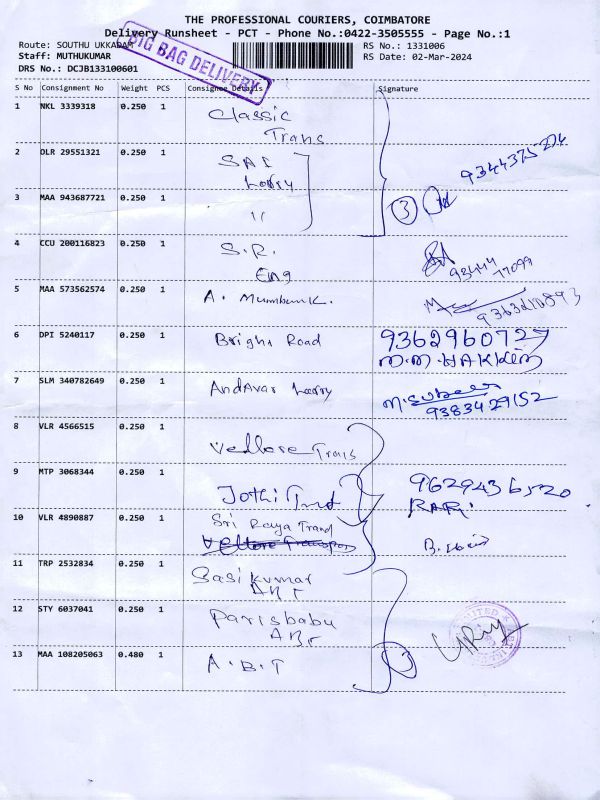 THE PROFESSIONAL COURIERS, COIMBATORE
Delivery Runsheet - PCT - Phone No.:0422-3505555 - Page No.:1
Route: SOUTHU UKKADAM
RS No.: 1331006
Staff: MUTHUKUMAR
RS Date: 02-Mar-2024
DRS No.: DCJB133100601
BIG BAG DELIVERY
S No Consignment No Weight PCS Consignee Details Signature
1 NKL 3339318 0.250 1 Classic
Trans
2 DLR 29551321 0.250 1 SAI
Lorry
9344375224
3 MAA 943687721 0.250 1 11
3
4 CCU 200116823 0.250 1 S.R.
Eng
93444
77099
5 MAA 573562574 0.250 1 A. Mumbum K.
9363210893
6 DPI 5240117 0.250 1 Bright Road 9362960727
M.M.HAKKIM
7 SLM 340782649 0.250 1 Andavar Lorry
9383429152
8 VLR 4566515 0.250 1 Vellore Trans
9 MTP 3068344 0.250 1 Jothi Trnt 9629436520
RARi
10 VLR 4890887 0.250 1 Sri Raya Trand
Vellore Transpor
11 TRP 2532834 0.250 1 Sasikumar
ABT
12 STY 6037041 0.250 1 Parisbabu
ABT
13 MAA 108205063 0.480 1 A.B.T
3